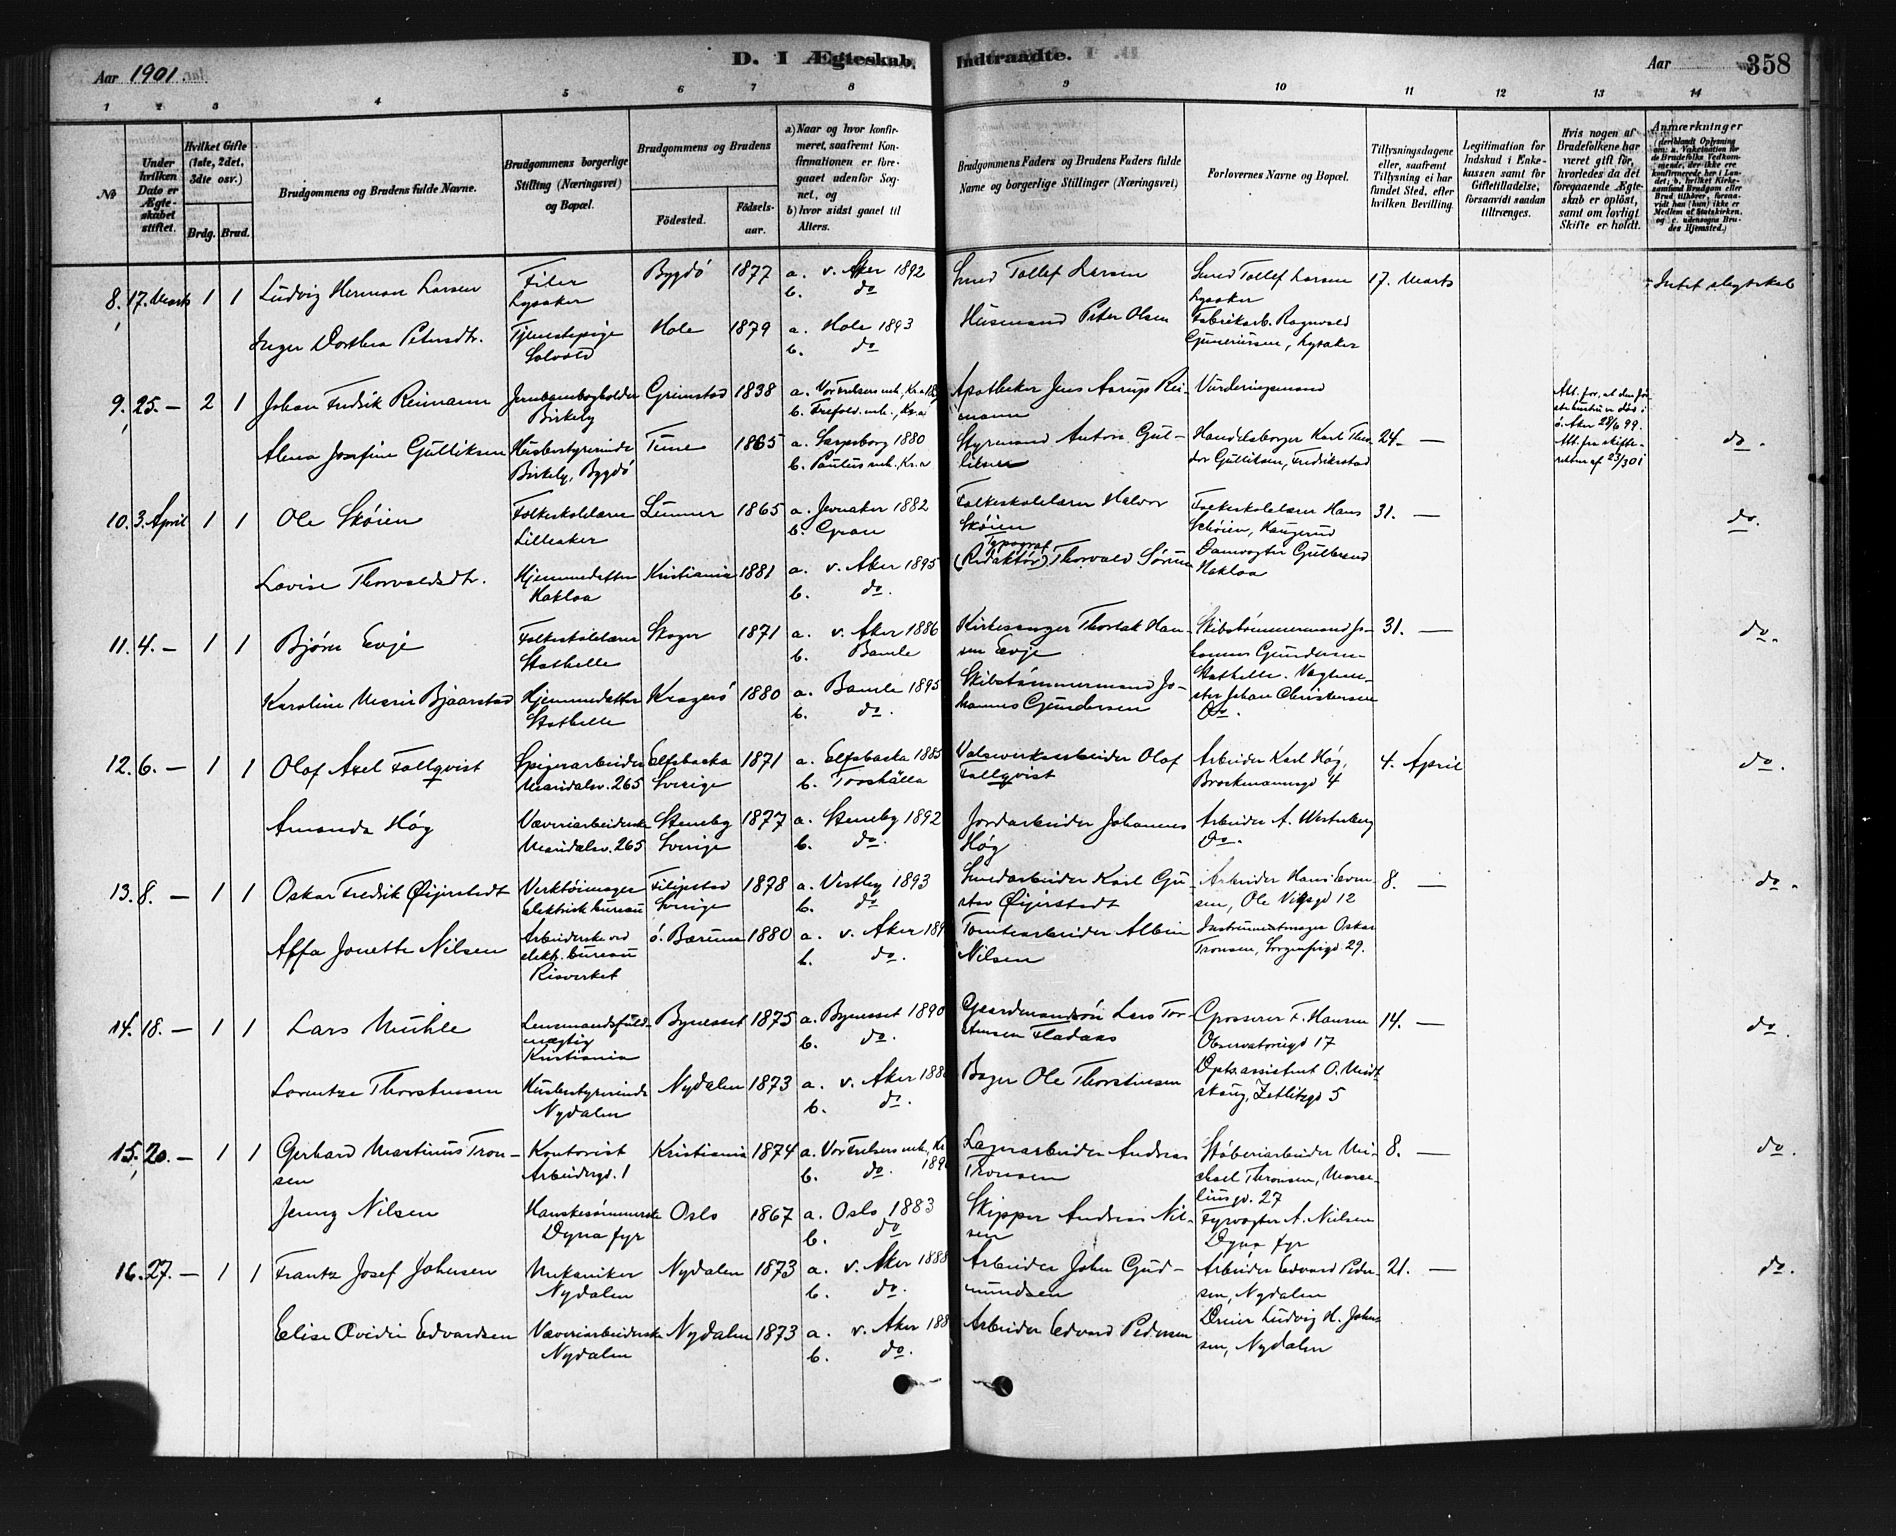 Aar 1901.
D. I Ægteskab
Indtraadte.
Aar
358
1 2 3 4 5 6 7 8 9 10 11 12 13 14
№
Under hvilken Dato er Ægteskabet stiftet.
Hvilket Gifte (1ste, 2det, 3dte osv.)
Brdg. Brud.
Brudgommens og Brudens fulde Navne.
Brudgommens borgerlige Stilling (Næringsvei) og Bopæl.
Brudgommens og Brudens
Födested.
Födsels-aar.
a) Naar og hvor konfirmeret, saafremt Konfirmationen er foregaaet udenfor Sognet, og
b) hvor sidst gaaet til Alters.
Brudgommens Faders og Brudens Faders fulde Navne og borgerlige Stillinger (Næringsvei)
Forlovernes Navne og Bopæl.
Tillysningsdagene eller, saafremt Tillysning ei har fundet Sted, efter hvilken Bevilling.
Legitimation for Indskud i Enkekassen samt for Giftetilladelse, forsaavidt saadan tiltrænges.
Hvis nogen af Brudefolkene har været gift för, hvorledes da det foregaaende Ægteskab er oplöst, samt om lovligt Skifte er holdt.
Anmærkninger
8. 17. Marts 1 1 Ludvig Herman Larsen Filer Lysaker Bygdö 1877 a. v. Aker 1892 b. do Smed Tollef Larsen Smed Tollef Larsen Lysaker 17. Marts Intet slegtskab
Inger Dorthea Petersdtr. Tjenestepige Hole 1879 a. Hole 1893 b. do Husmand Peter Olsen Fabrikarb. Ragnvald Gunerussen, Lysaker
9. 25. — 2 1 Johan Fredrik Reimann Jernbanebogholder Birkeby Grimstad 1838 a. Vor Frelsers mh., Kr.a b. Trefold. mh., Kr.a Apotheker Jens Aarup Reimann Vurderingsmand
Alena Josefine Gulliksen Husbestyrerinde Birkeby, Bygdö Tune 1865 a. Sarpsborg 1880 b. Paulus mh., Kr.a Styrmand Anton Gulliksen Handelsborger Karl Theodor Gulliksen, Fredriksstad 24. — do.
10. 3. April 1 1 Ole Sköien Folkeskolelærer Lilleaker Lunner 1865 a. Jevnaker 1882 b. Gran Folkeskolelærer Halvor Sköien Folkeskolelærer Hans Schöien, Haugerud 31. — do.
Lovise Thorvaldsdtr. Hjemmedatter Hakloa Kristiania 1881 a. v. Aker 1895 b. do. (Redaktör) Typograf Thorvald Sörum Damvogter Gulbrand Hakloa
11. 4. — 1 1 Björn Evje Folkeskolelærer Stathelle Skoger 1871 a. v. Aker 1886 b. Bamle Kirkesanger Thorlak Hansen Evje Skibstömmermand Johannes Gundersen Stathelle. 31. — do.
Karoline Marie Bjaarstad Hjemmedatter Stathelle Kragerö 1880 a. Bamle 1895 b. do. Skibstömmermand Johannes Gundersen Vagtmester Johan Christensen do.
12. 6. — 1 1 Olof Axel Fallqvist Spigerarbeider Maridalsv. 265 Elfsbacka Sverige 1871 a. Elfsbacka 1885 b. Torshälla Valseverksarbeider Olof Fallqvist Arbeider Karl Høg, Brockmannsgd 4 4. April do.
Amanda Høg Væveriarbeiderske Maridalsv. 265 Steneby Sverige 1877 a. Steneby 1892 b. do. Jordarbeider Johannes Høg Arbeider A. Westerberg do.
13. 8. — 1 1 Oskar Fredrik Øijerstedt Verktöimager elektrisk bureau Filipstad Sverige 1878 a. Vestby 1893 b. do Smedarbeider Karl Gustav Øijerstedt Arbeider Hans Evensen, Ole Vigsgd 12 8. — do.
Affa Jonette Nilsen Arbeiderske ved elekt. bureau Risverket ö. Bærum 1880 a. v. Aker b. do. Tomtearbeider Albin Nilsen Instrumentmager Oskar Tronsen, Sorgenfrigd 29.
14. 18. — 1 1 Lars Muhle Lensmandsfuldmægtig Kristiania Bynesset 1875 a. Bynesset 1890 b. do. Gaardmandsön Lars Torstensen Fladaas Grosserer F. Hansen Observatoriegd 17 14. — do.
Lorentze Thorstensen Husbestyrerinde Nydalen Nydalen 1873 a. v. Aker b. do. Bager Ole Thorstensen Dpts.assistent O. Meidtskaug, Zetlitzgd 5
15. 20. — 1 1 Gerhard Martinius Tronsen Kontorist Arbeidergd. 1 Kristiania 1874 a. Vor Frelsers mh., Kr. b. do. Lagerarbeider Andreas Tronsen Stöberiarbeider Michael Thronsen, Marseliusgd. 27 8. — do.
Jenny Nilsen Hanskesömmerske Dyna fyr Oslo 1867 a. Oslo 1883 b. do Skipper Andreas Nilsen Fyrvogter A. Nielsen Dyna fyr
16. 27. — 1 1 Frantz Josef Johnsen Mekaniker Nydalen Nydalen 1873 a. v. Aker 1888 b. do. Arbeider John Gudmundsen Arbeider Edvard Pedersen, Nydalen 21. — do.
Elise Ovidie Edvardsen Væveriarbeiderske Nydalen Nydalen 1873 a. v. Aker b. do. Arbeider Edvard Pedersen Dreier Ludvig H. Johnsen, Nydalen